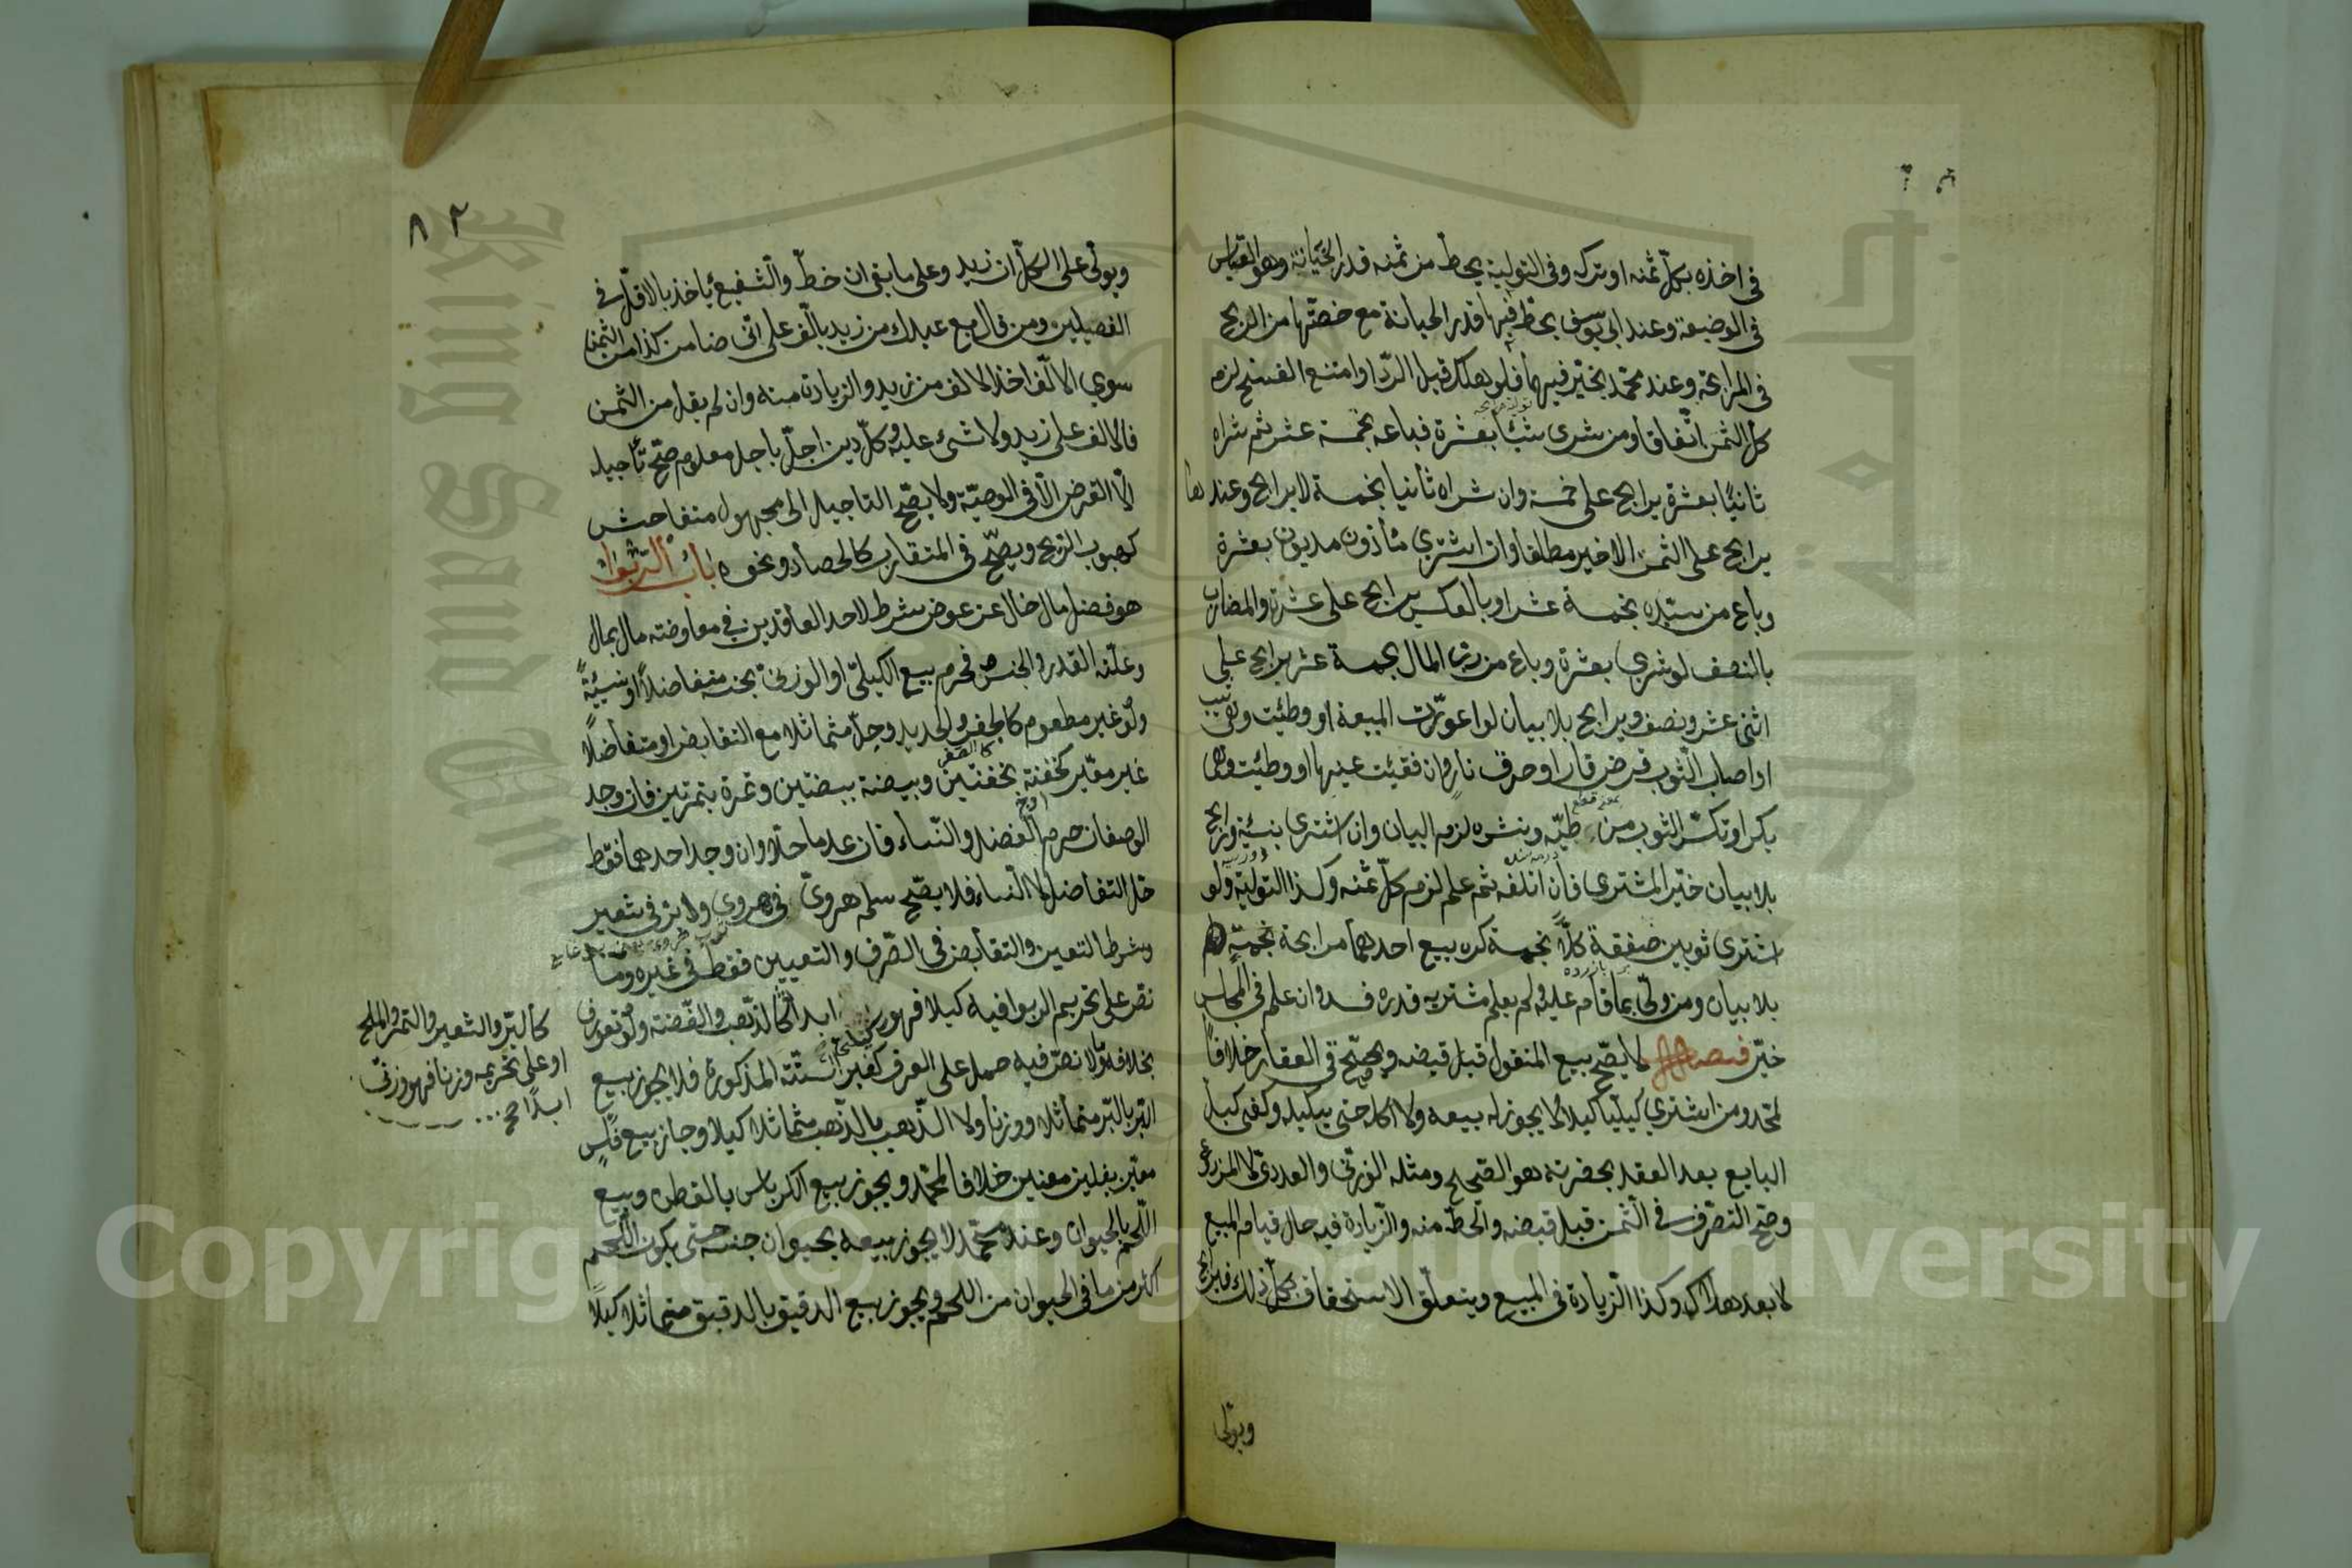 في اخذه بكل ثمنه او تركه وفي التولية يحط من ثمنه قدر الخيانة وهو القياس
في الوضيعة وعند ابي يوسف يحط فيهما قدر الخيانة مع حصتها من الربح
في المرابحة وعند محمد يخير فيهما فلو هلك قبل الرد او امتنع الفسخ لزم
كل الثمن اتفاقا ومن شرى شيئا بعشرة فباعه بخمسة عشر ثم شراه
ثانيا بعشرة يرابح على خمسة وان شراه ثانيا بخمسة لا يرابح وعندهما
يرابح على الثمن الاخير مطلقا وان اشترى مأذون مديون بعشرة
وباع من سيده بخمسة عشر او بالعكس يرابح على عشرة والمضارب
بالنصف لو شرى بعشرة وباع من رب المال بخمسة عشر يرابح على
اثنى عشر ونصف ويرابح بلا بيان لو اعورت المبيعة او وطئت وهي ثيب
او اصاب الثوب قرض فار او حرق نار وان فقئت عينها او وطئت وهي
بكر او تكسر الثوب من طيه ونشره لزم البيان وان اشترى بنسيئة ورابح
بلا بيان خير المشتري فان اتلفه ثم علم لزم كل ثمنه وكذا التولية ولو
اشترى ثوبين صفقة كلا بخمسة كره بيع احدهما مرابحة بخمسة
بلا بيان ومن ولى بما قام عليه ولم يعلم مشتريه قدره فسد وان علم في المجلس
خير فصل لا يصح بيع المنقول قبل قبضه ويصح في العقار خلافا
لمحمد ومن اشترى كيليا كيلا لا يجوز له بيعه ولا اكله حتى يكيله وكفى كيل
البايع بعد العقد بحضرته هو الصحيح ومثله الوزني والعددي لا المزروع
وصح التصرف في الثمن قبل قبضه والحط منه والزيادة فيه حال قيام المبيع
لا بعد هلاكه وكذا الزيادة في المبيع ويتعلق الاستحقاق بكل ذلك فيرابح
ويولى
٨٢
ويولى على الكل ان زيد وعلى ما بقى ان حط والشفيع ياخذ بالاقل في
الفصيلين ومن قال بع عبدك من زيد بالف على انى ضامن كذا من الثمن
سوى الالف اخذ الالف من زيد والزيادة منه وان لم يقل من الثمن
فالالف على زيد ولا شئ عليه وكل دين اجل باجل معلوم صح تأجيله
الا القرض الا في الوصية ولا يصح التاجيل الى مجهول متفاحش
كهبوب الريح ويصح في المتقارب كالحصاد ونحوه باب الربوا
هو فضل مال خال عن عوض شرط لاحد العاقدين في معاوضة مال بمال
وعلته القدر والجنس فحرم بيع الكيلي او الوزني بجنسه متفاضلا او نسيئة
ولو غير مطعوم كالجص والحديد وحل متماثلا مع التقابض او متفاضلا
غير معير كحفنة بحفنتين وبيضة ببيضتين وتمرة بتمرتين فان وجد
الوصفان حرم الفضل والنساء فان عدما حلا وان وجد احدهما فقط
حل التفاضل لا النساء فلا يصح سلم هروى في هروي ولا بر في شعير
وشرط التعيين والتقابض في الصرف والتعيين فقط في غيره وما
نص على تحريم الربوا فيه كيلا فهو كيلي ابدا كالذهب والفضة ولو تعورف
بخلافه وما لا نص فيه حمل على العرف كغير الستة المذكورة فلا يجوز بيع
البر بالبر متماثلا وزنا ولا الذهب بالذهب متماثلا كيلا وجاز بيع فلس
معين بفلسين معينين خلافا لمحمد ويجوز بيع الكرباس بالقطن وبيع
اللحم بالحيوان وعند محمد لا يجوز بيعه بحيوان جنسه حتى يكون اللحم
اكثر من ما في الحيوان من اللحم ويجوز بيع الدقيق بالدقيق متماثلا كيلا
كالبر والشعير والتمر والملح
او على تحريمه وزنا فهو وزني
ابدا صح
Copyright © King Saud University
King Saud University
جامعة الملك سعود